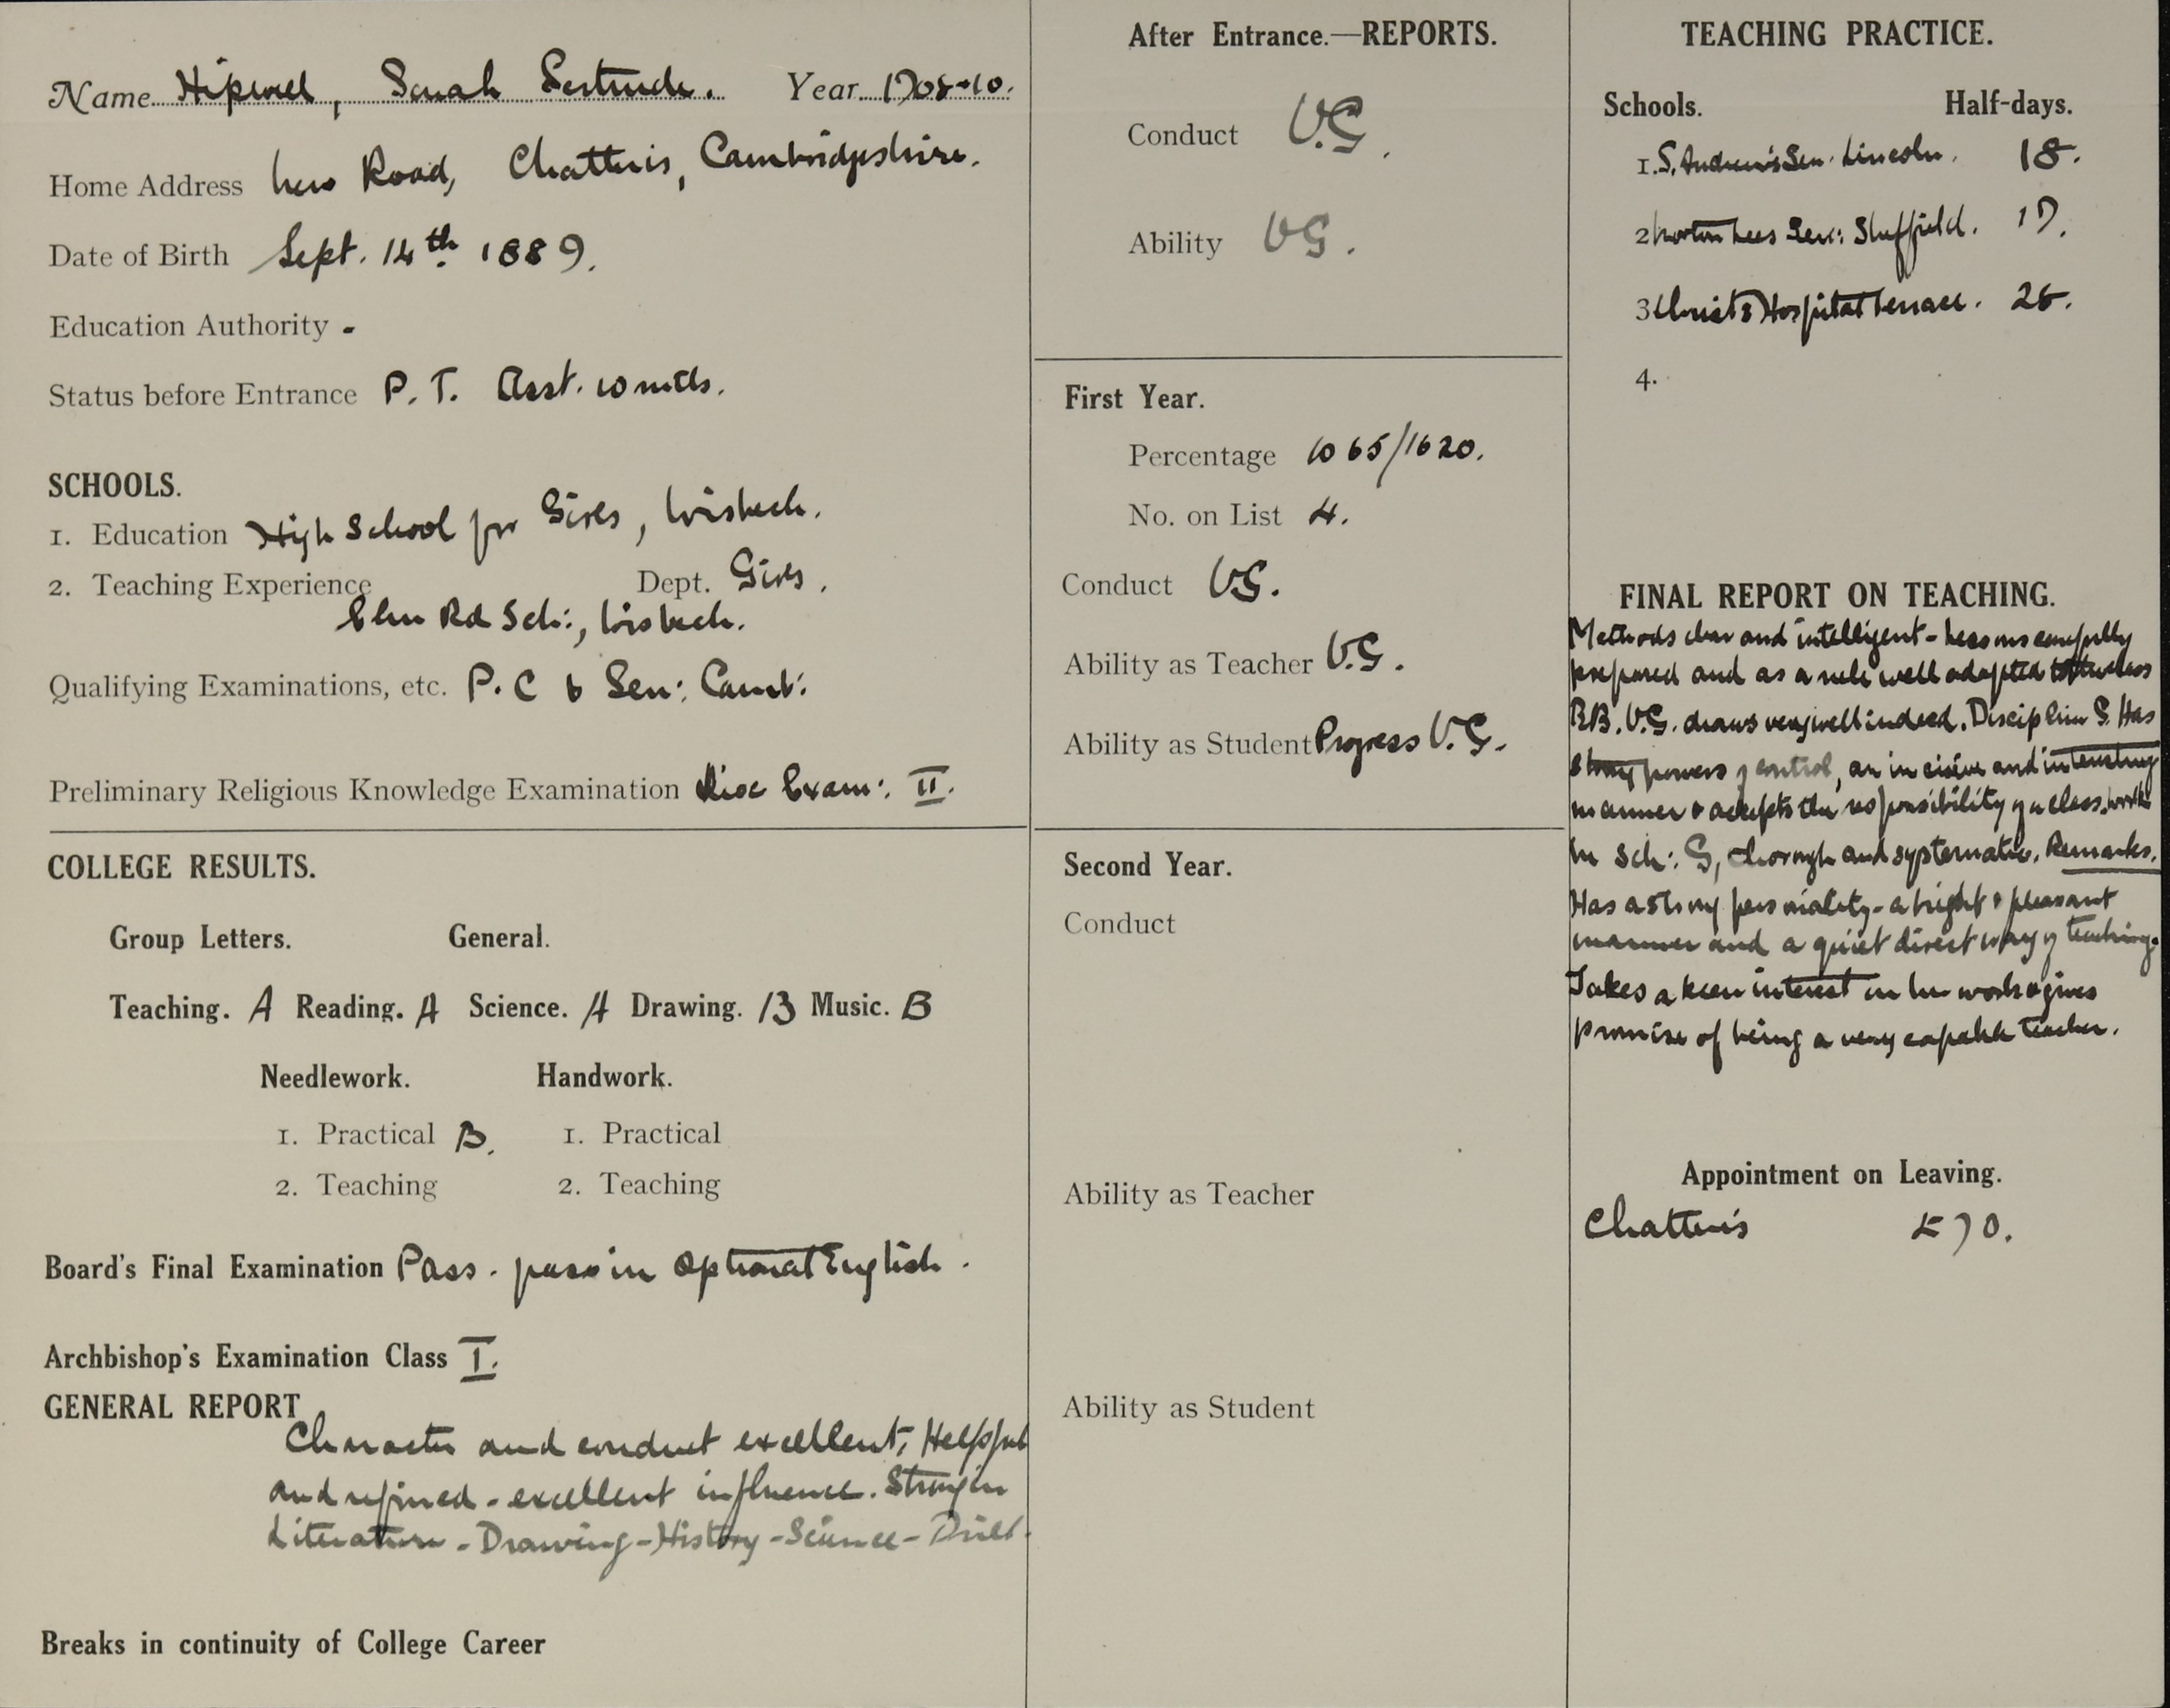 Name Hipwell, Sarah Gertrude. Year 1908-10.
Home Address New Road, Chatteris, Cambridgeshire.
Date of Birth Sept. 14th 1889.
Education Authority -
Status before Entrance P. T. Asst. 10 mths.
SCHOOLS.
1. Education High School for Girls, Wisbech.
2. Teaching Experience Dept. Girls.
Elm Rd Sch:, Wisbech.
Qualifying Examinations, etc. P.C & Sen: Camb:
Preliminary Religious Knowledge Examination Dioc Exam: II.
COLLEGE RESULTS.
Group Letters. General.
Teaching. A Reading. A Science. A Drawing. B Music. B
Needlework. Handwork.
1. Practical B. 1. Practical
2. Teaching 2. Teaching
Board's Final Examination Pass. pass in Optional English.
Archbishop's Examination Class I.
GENERAL REPORT
Character and conduct excellent, Helpful
and refined - excellent influence. Strong in
Literature - Drawing - History - Science - Drill.
Breaks in continuity of College Career
After Entrance.—REPORTS.
Conduct V.G.
Ability VG.
First Year.
Percentage 1065/1620.
No. on List 4.
Conduct VG.
Ability as Teacher V.G.
Ability as Student Progress V.G.
Second Year.
Conduct
Ability as Teacher
Ability as Student
TEACHING PRACTICE.
Schools. Half-days.
1. S. Andrew's Sen. Lincoln. 18.
2 Norton Lees Sen: Sheffield. 17.
3 Christ's Hospital Terrace. 25.
4.
FINAL REPORT ON TEACHING.
Methods clear and intelligent - Lessons carefully
prepared and as a rule well adapted to the class
BB. V.G. draws very well indeed. Discipline G. Has
strong powers of control, an incisive and interesting
manner & accepts the responsibility of a class. Work
in Sch: G, thorough and systematic. Remarks.
Has a strong personality - a bright & pleasant
manner and a quiet direct way of teaching.
Takes a keen interest in her work & gives
promise of being a very capable teacher.
Appointment on Leaving.
Chatteris £70.